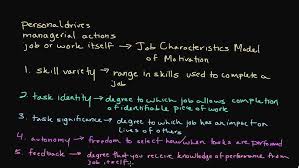 personal drives
managerial actions
job or work itself → Job Characteristics Model
of Motivation
1. skill variety → range in skills used to complete
a job
2. task identity → degree to which job allows completion
of identifiable piece of work
3. task significance → degree to which job has an impact on
lives of others
4. autonomy → freedom to select how/when tasks are performed
5. feedback → degree that you receive knowledge of performance from
job itself